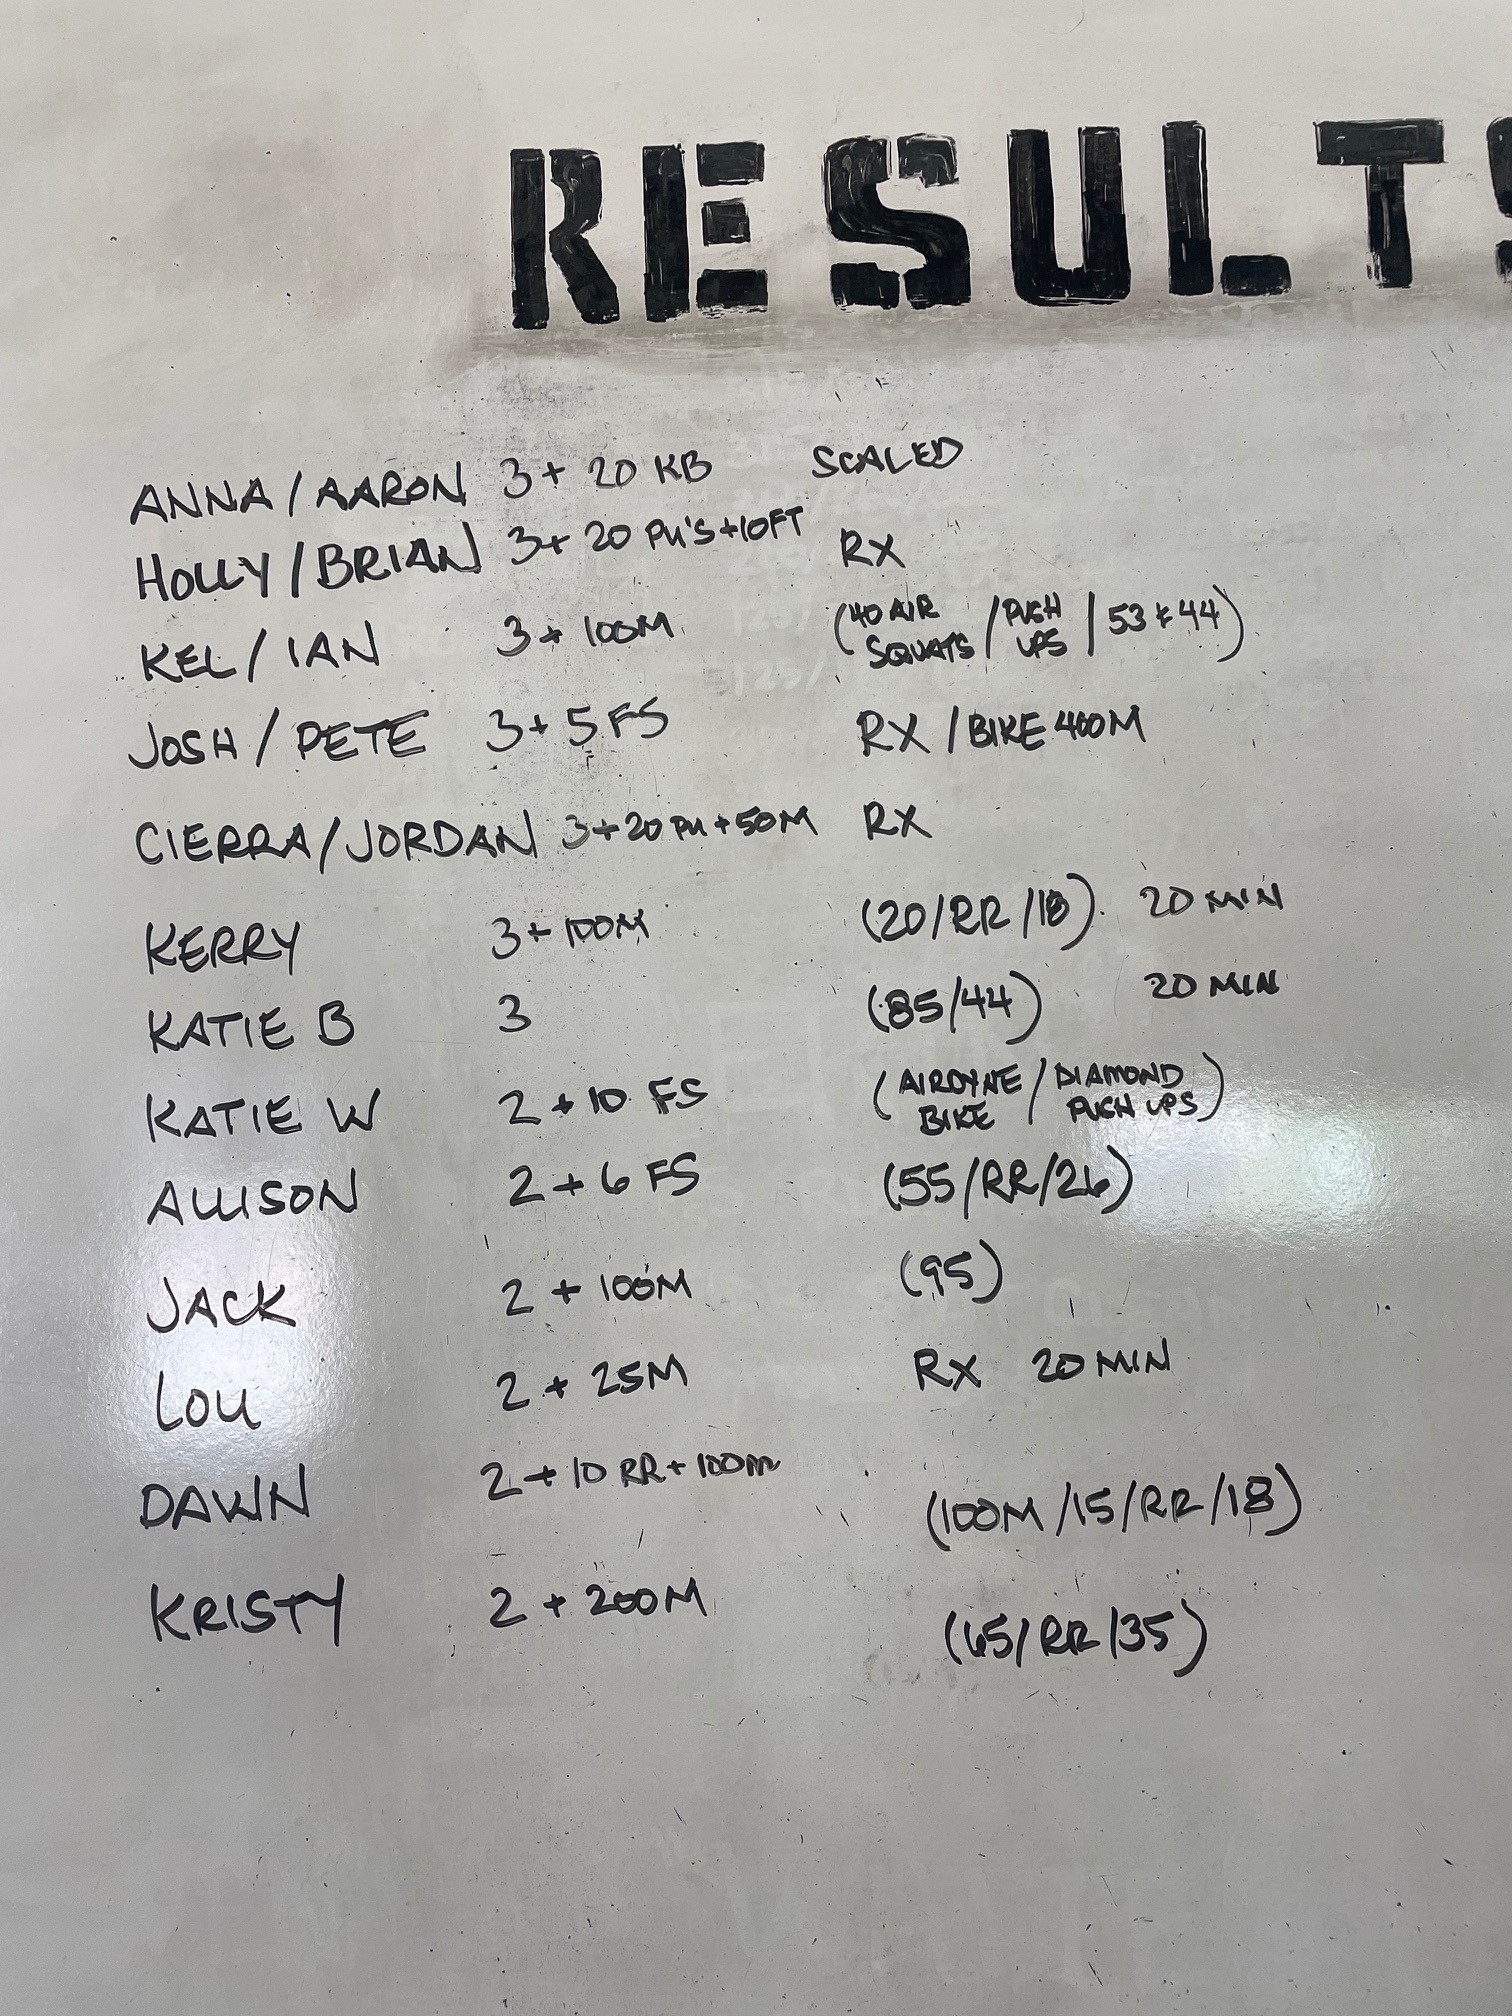 RESULTS
ANNA/AARON 3+ 20 KB SCALED
HOLLY/BRIAN 3+ 20 PU'S+10FT RX
KEL/IAN 3+ 100M (40 AIR SQUATS/PUSH UPS/53+44)
JOSH/PETE 3+ 5 FS RX/BIKE 400M
CIERRA/JORDAN 3+20 PU+50M RX
KERRY 3+ 100M (20/RR/18) 20 MIN
KATIE B 3 (85/44) 20 MIN
KATIE W 2+10 FS (AIRDYNE BIKE/DIAMOND PUSH UPS)
ALLISON 2+6 FS (55/RR/26)
JACK 2+100M (95)
LOU 2+25M RX 20 MIN
DAWN 2+10 RR+100M (100M/15/RR/18)
KRISTY 2+200M (65/RR/35)